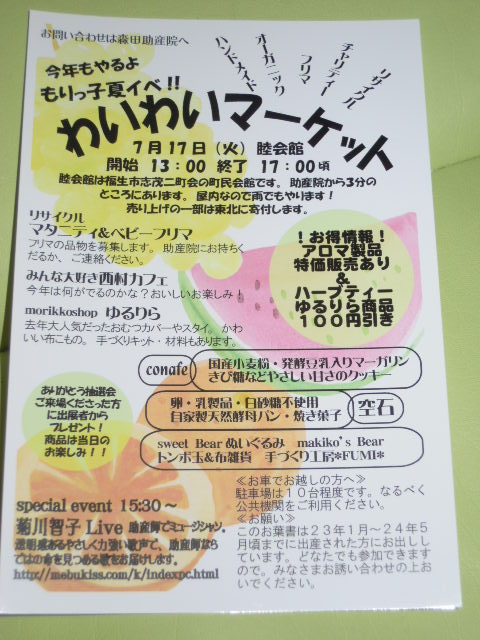 お問い合わせは森田助産院へ
今年もやるよ
もりっ子夏イベ!!
ハンドメイド
オーガニック
フリマ
チャリティー
リサイクル
わいわいマーケット
7月17日(火) 睦会館
開始 13:00 終了 17:00頃
睦会館は福生市志茂二町会の町民会館です。助産院から3分の
ところにあります。屋内なので雨でもやります!
売り上げの一部は東北に寄付します。
リサイクル
マタニティ&ベビーフリマ
フリマの品物を募集します。助産院にお持ちく
だるか、ご連絡ください。
みんな大好き西村カフェ
今年は何がでるのかな?おいしいお楽しみ!
morikkoshop ゆるりら
去年大人気だったおむつカバーやスタイ。かわ
いい布こもの。手づくりキット・材料もあります。
!お得情報!
アロマ製品
特価販売あり
&
ハーブティー
ゆるりら商品
100円引き
conafe
国産小麦粉・発酵豆乳入りマーガリン
きび糖などやさしい甘さのクッキー
卵・乳製品・白砂糖不使用
自家製天然酵母パン・焼き菓子
空石
sweet Bear ぬいぐるみ makiko's Bear
トンボ玉&布雑貨 手づくり工房*FUMI*
ありがとう抽選会
ご来場くださった方
に出展者から
プレゼント!
商品は当日の
お楽しみ!!
special event 15:30~
菊川智子 Live 助産師でミュージシャン。
透明感あるやさしく力強い歌声で、助産師なら
ではの命を見つめる歌をお届けします。
http://mebukiss.com/k/indexpc.html
≪お車でお越しの方へ≫
駐車場は10台程度です。なるべく
公共機関をご利用ください。
≪お願い≫
このお葉書は23年1月~24年5
月頃までに出産された方にお出しし
ています。どなたでも参加できます
ので、みなさまお誘い合わせの上お
いでください。